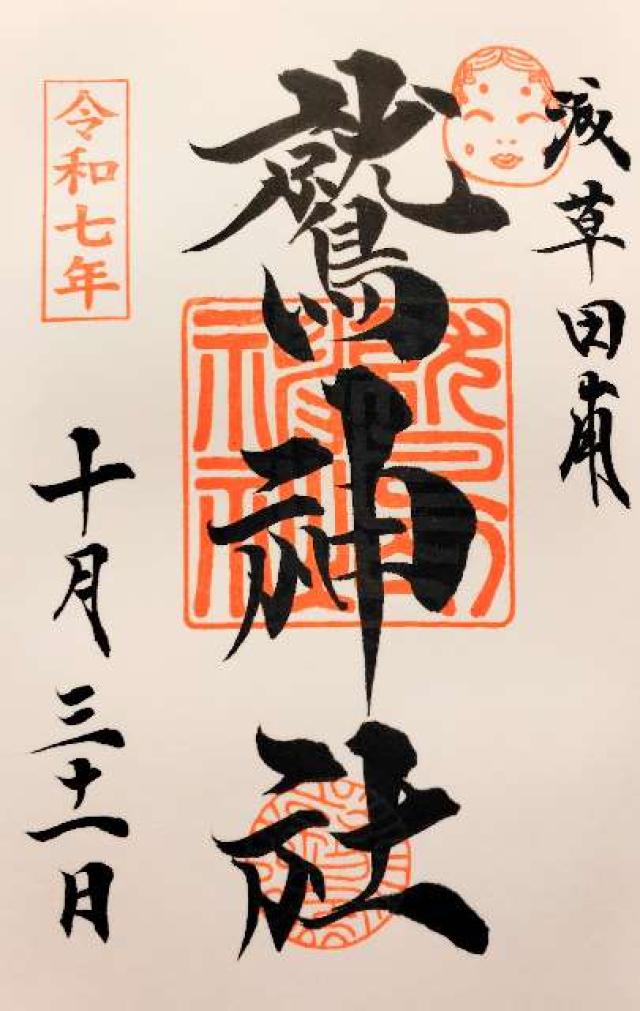 浅草田甫
鷲神社
令和七年
十月三十一日